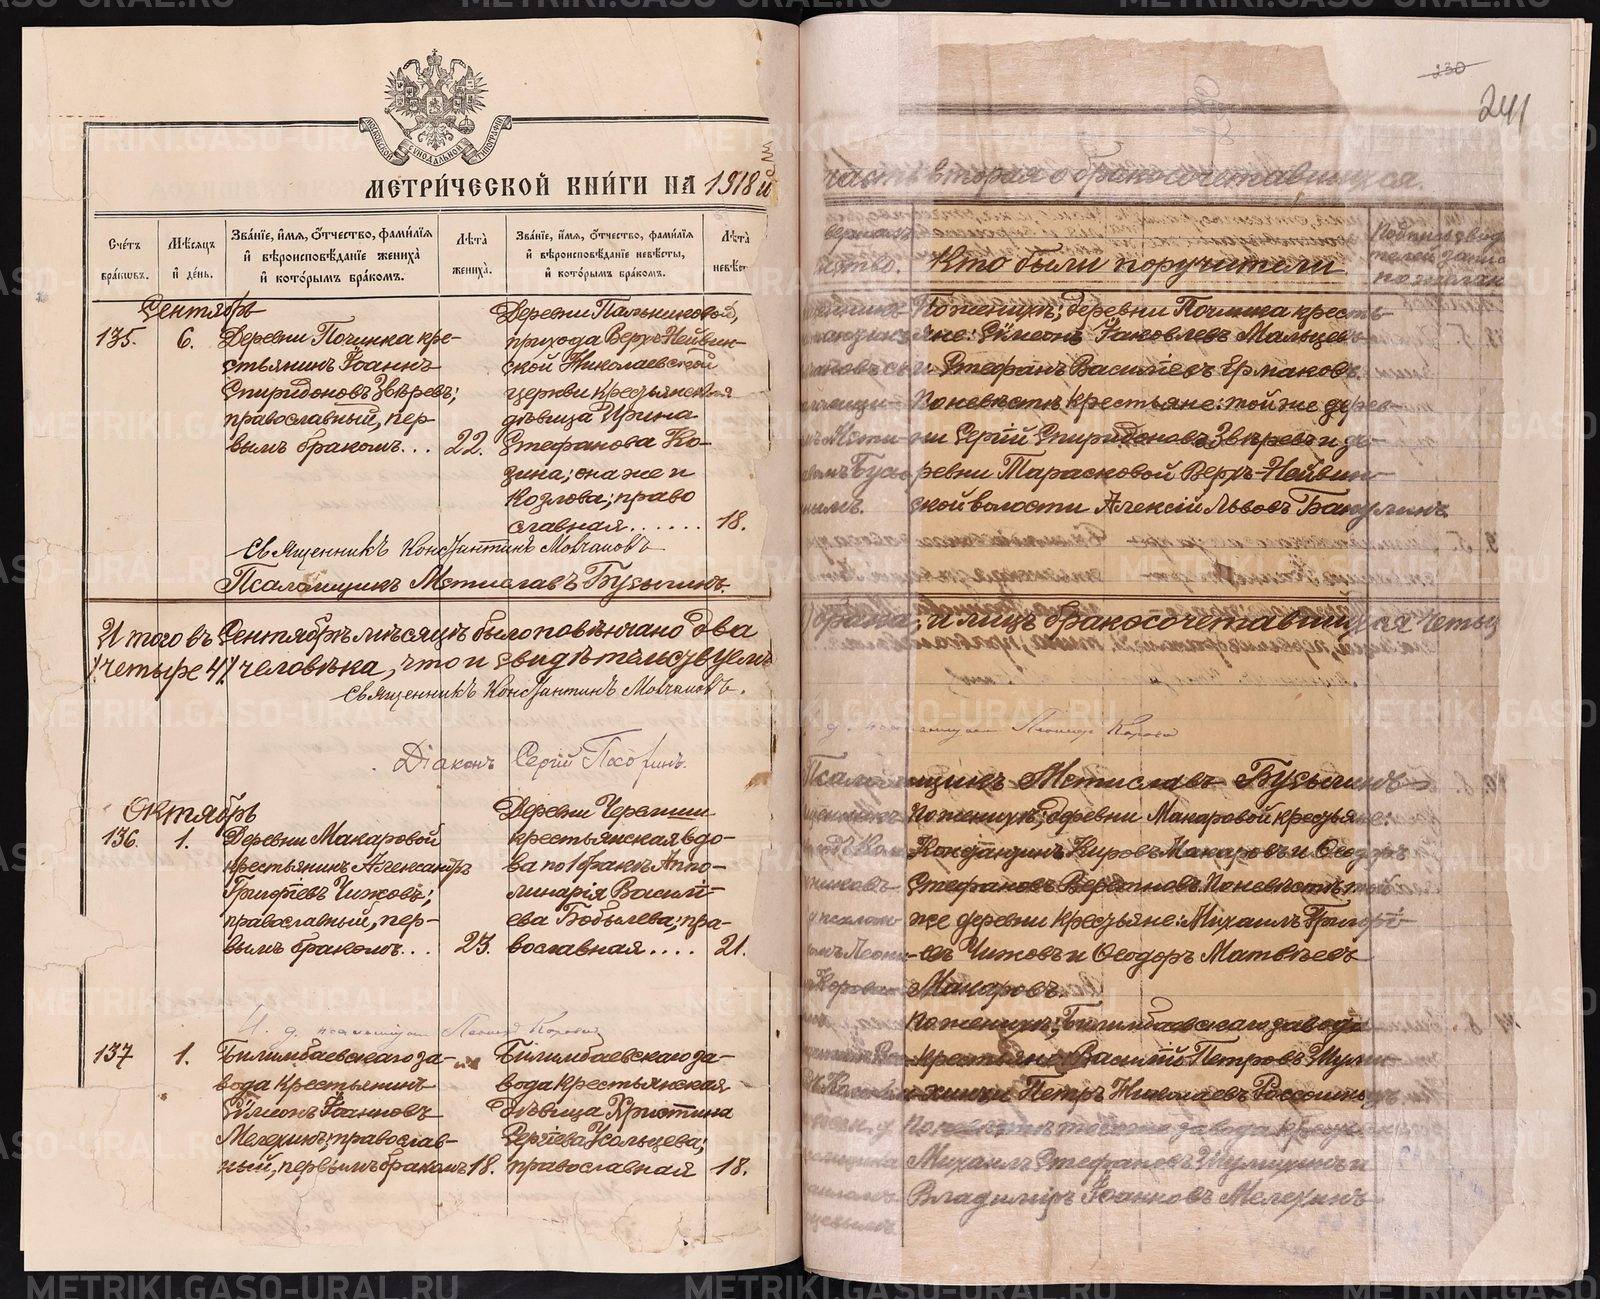 МОСКОВСКОЙ СУНОДАЛЬНОЙ ТИПОГРАФІИ
МЕТРИ́ЧЕСКОЙ КНИ́ГИ НА 1918й
Сче́тъ бра́ковъ.
Мѣ́сяцъ и҆ де́нь.
Зва́нїе, и҆́мя, ѻ҆́тчество, фами́лїя и҆ вѣроисповѣ́данїе жениха̀ и҆ кото́рымъ бра́комъ.
Лѣ́та жениха̀.
Зва́нїе, и҆́мя, ѻ҆́тчество, фами́лїя и҆ вѣроисповѣ́данїе невѣ́сты, и҆ кото́рымъ бра́комъ.
Лѣ́та невѣс
Сентябрь
135.
6.
Деревни Починка кре-
стьянинъ Іоаннъ
Спиридоновъ Звѣревъ;
православный, пер-
вымъ бракомъ...
22.
Деревни Пальниковой,
прихода Верх-Нейвин-
ской Николаевской
церкви крестьянская
дѣвица Ирина
Стефанова Ко-
зина; она же и
Козлова; право
славная......
18.
Священникъ Константинъ Мовчановъ
Псаломщикъ Мстиславъ Бусыгинъ.
Итого въ Сентябрѣ мѣсяцѣ было повѣнчано два
/четыре 4/ человѣка, что и свидѣтельствуемъ
Священникъ Константинъ Мовчановъ.
Діаконъ Сергій
Октябрь
136.
1.
Деревни Макаровой
крестьянинъ Александръ
Григорьевъ Чижовъ;
православный, пер-
вымъ бракомъ...
23.
Деревни Черемши
крестьянская вдо-
ва по 1 бракѣ Аппо-
линарія Василі-
ева Бобылева; пра-
вославная....
21.
И. д. псаломщика Леонид
137
1.
Билимбаевскаго за-
вода крестьянинъ
Сѵмеонъ Іоанновъ
Мелехинъ; православ-
ный, первымъ бракомъ
18.
Билимбаевскаго за-
вода крестьянская
дѣвица Христина
Сергіева Усольцева;
православная
18.
230
241
часть вторая о бракосочетавшихся.
Кто были поручители
По женихѣ; деревни Починка кресть-
яне: Сѵмеонъ Іаковлевъ Мальцевъ
и Стефанъ Василіевъ Ермаковъ.
По невѣстѣ крестьяне: той же дерев-
ни Сергій Спиридоновъ Звѣревъ и де-
ревни Тарасковой Верхъ-Нейвин-
ской волости Алексій Львовъ Бакулинъ
брака; и лицъ бракосочетавшихся четы
Псаломщикъ Мстиславъ Бусыгинъ
По женихѣ; деревни Макаровой крестьяне:
Константинъ Кировъ Макаровъ и Ѳеодоръ
Стефановъ По невѣстѣ той
же деревни крестьяне: Михаилъ Григорі-
евъ Чижовъ и Ѳеодоръ Матвѣевъ
Макаровъ.
По женихѣ; Билимбаевскаго завода
крестьяне Василій Петровъ
и Петръ Николаевъ
По невѣстѣ того же завода крестьяне
Михаилъ Стефановъ Шумихинъ и
Владиміръ Іоанновъ Мелехинъ
METRIKI.GASO-URAL.RU